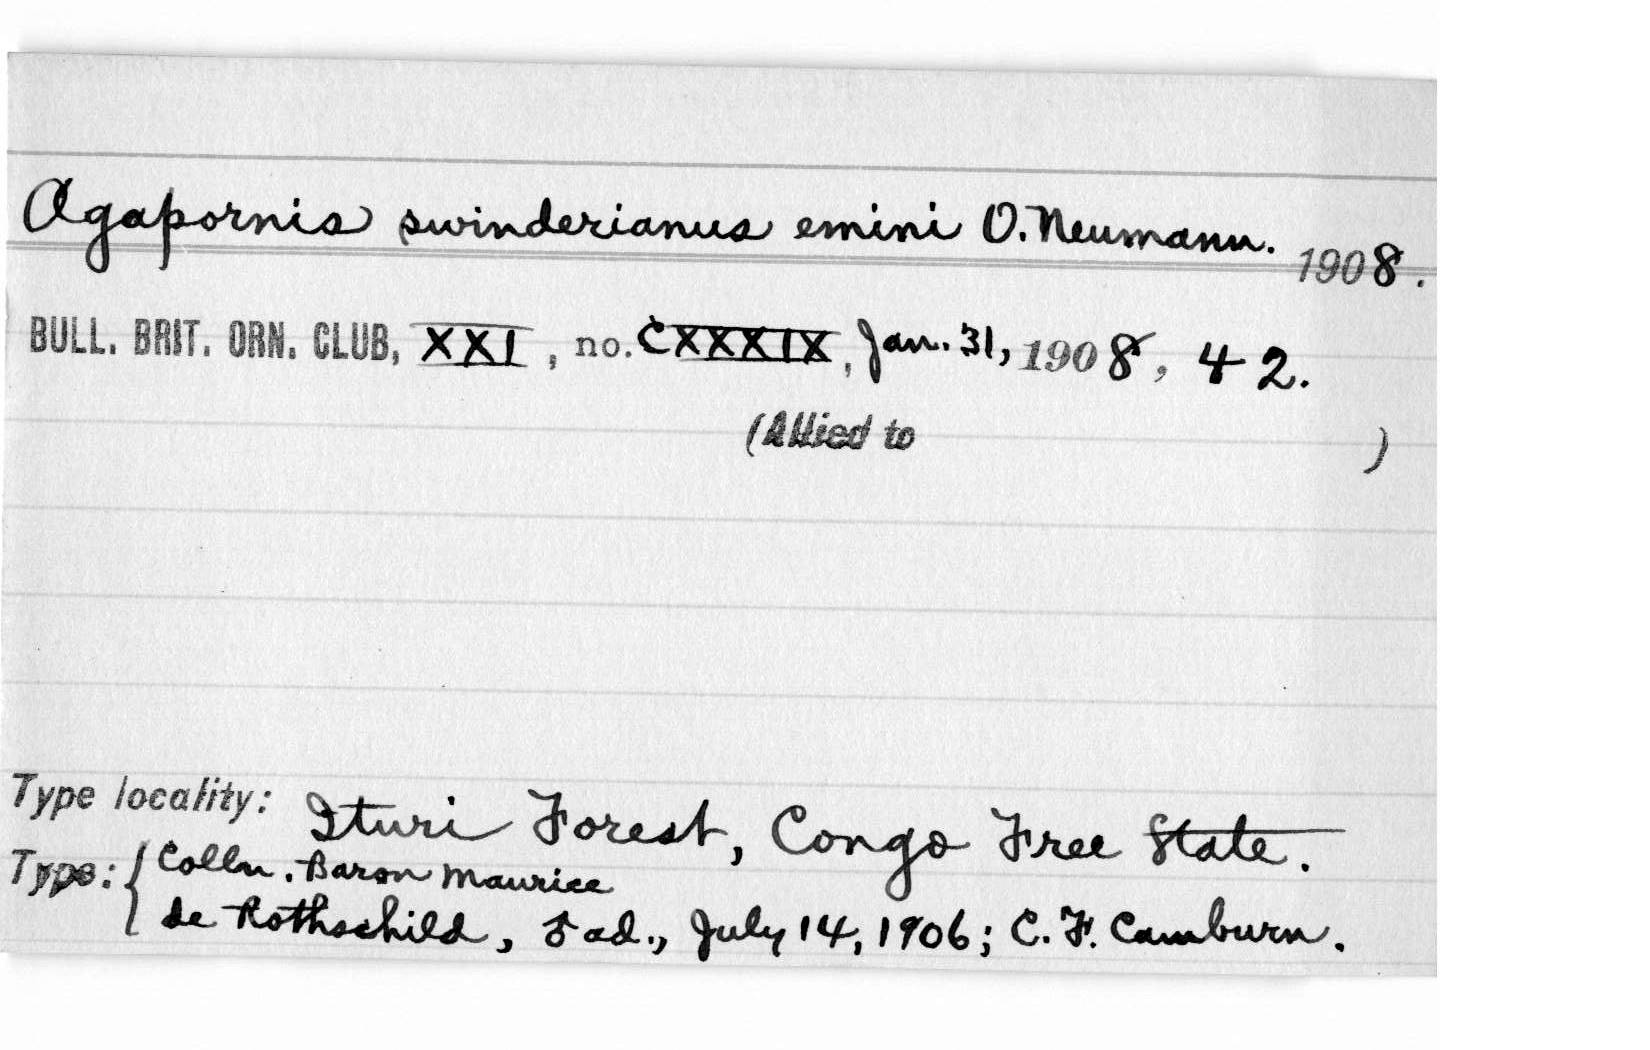 Agapornis swinderianus emini O. Neumann. 1908.
BULL. BRIT. ORN. CLUB, XXI, no. CXXXIX, Jan. 31, 1908, 42.
(Allied to )
Type locality: Ituri Forest, Congo Free State.
Type: { Colln. Baron Maurice
de Rothschild, ♂ ad., July 14, 1906; C. F. Camburn.